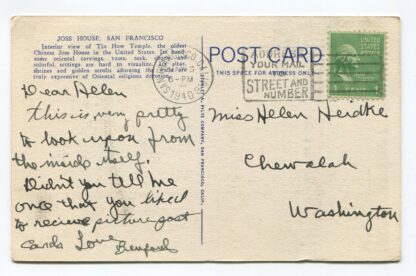 JOSS HOUSE, SAN FRANCISCO
Interior view of Tin How Temple, the oldest
Chinese Joss House in the United States. Its hand-
some oriental carvings, vases, teak, and
colorful settings are hard to visualize. Its altar,
shrines and golden scrolls adorning the are
truly expressive of Oriental religious devotion.
POST CARD
THIS SPACE FOR ADDRESS ONLY
ADDRESS
YOUR MAIL
TO
STREET AND
NUMBER
PM
1940
PLATE COMPANY, SAN FRANCISCO, CALIF.
Dear Helen
this is very pretty
to look upon from
the inside itself.
Didn't you tell me
once that you liked
to recieve picture post
cards Love
Miss Helen Heidke
Chewalah
Washington